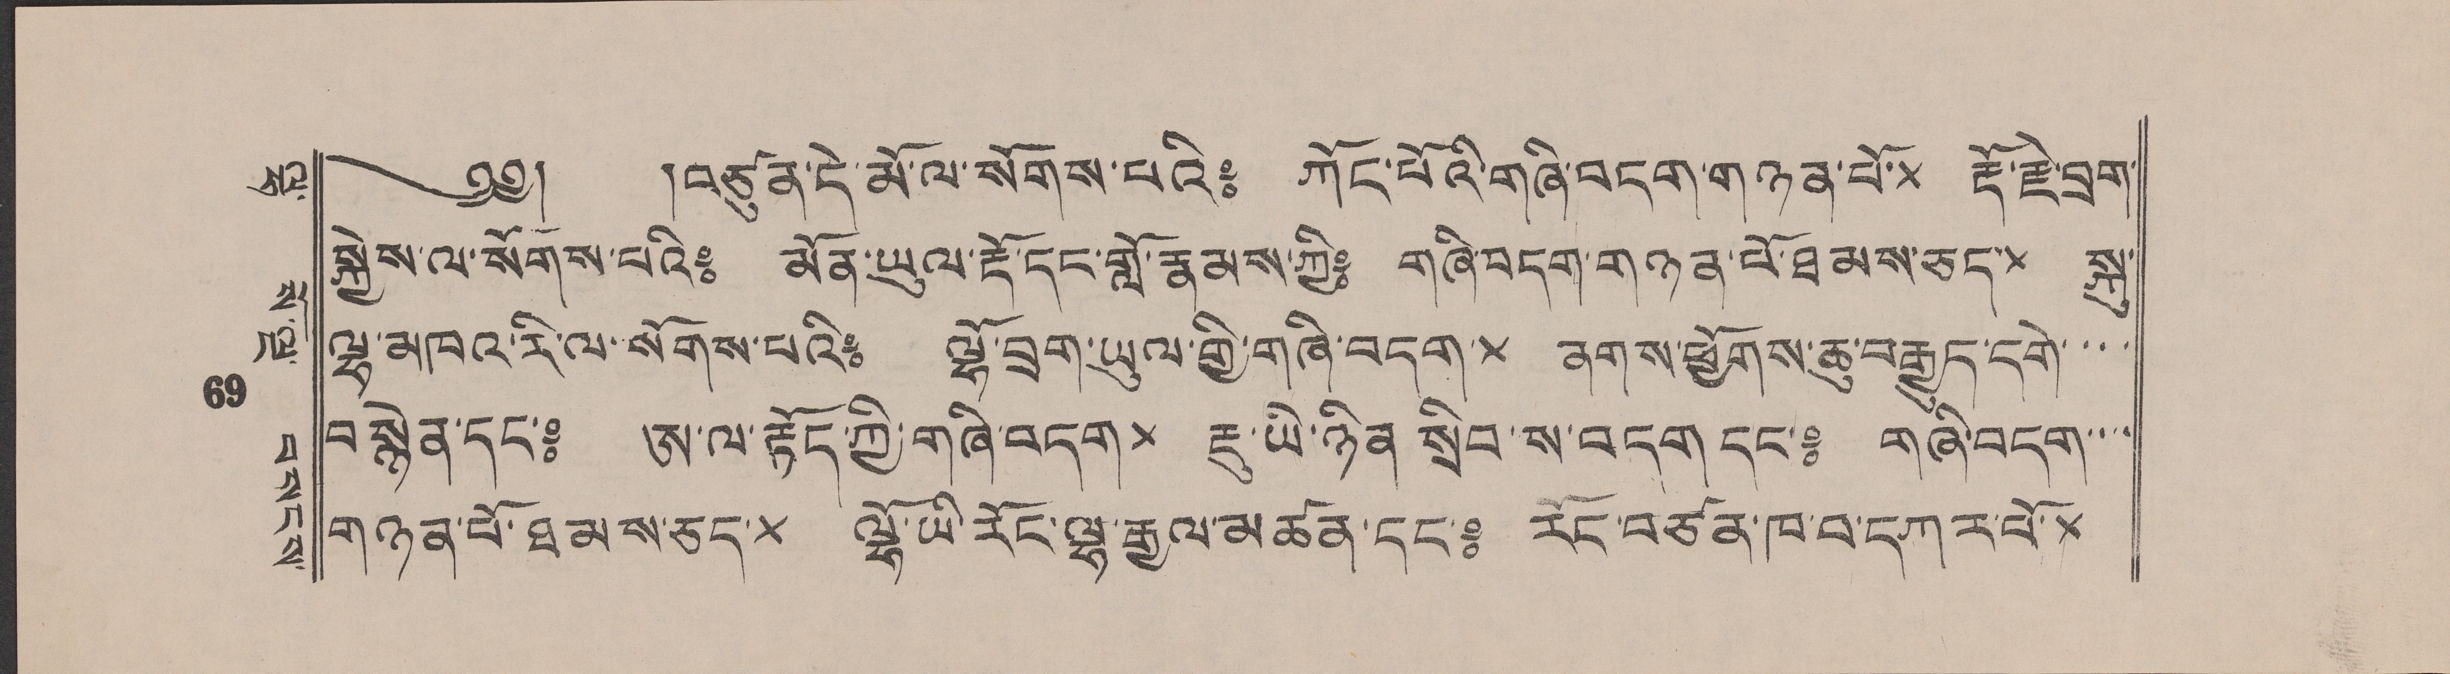 ༄༅། །བཙུན་དེ་མོ་ལ་སོགས་པའི༔ ཀོང་པོའི་གཞི་བདག་གཉན་པོ་× རྡོ་རྗེ་བྲག་
སྐྱེས་ལ་སོགས་པའི༔ མོན་ཡུལ་རྡོ་དང་གློ་རྣམས་ཀྱི༔ གཞི་བདག་གཉན་པོ་ཐམས་ཅད་× སྐུ་
ལྷ་མཁའ་རི་ལ་སོགས་པའི༔ ལྷོ་བྲག་ཡུལ་གྱི་གཞི་བདག་× ནགས་ཕྱོགས་ཆུ་བརྒྱུད་དགེ་····
བསྙེན་དང་༔ ཨ་ལ་རྫོང་ཀྱི་གཞི་བདག× རྔུ་ཡི་ཉིན་སྲིབ་ས་བདག་དང་༔ གཞི་བདག····
གཉན་པོ་ཐམས་ཅད་× ལྷོ་ཡི་རོང་ལྷ་རྒྱལ་མཚན་དང་༔ རོང་བཙན་ཁ་བ་དཀར་པོ་×
69